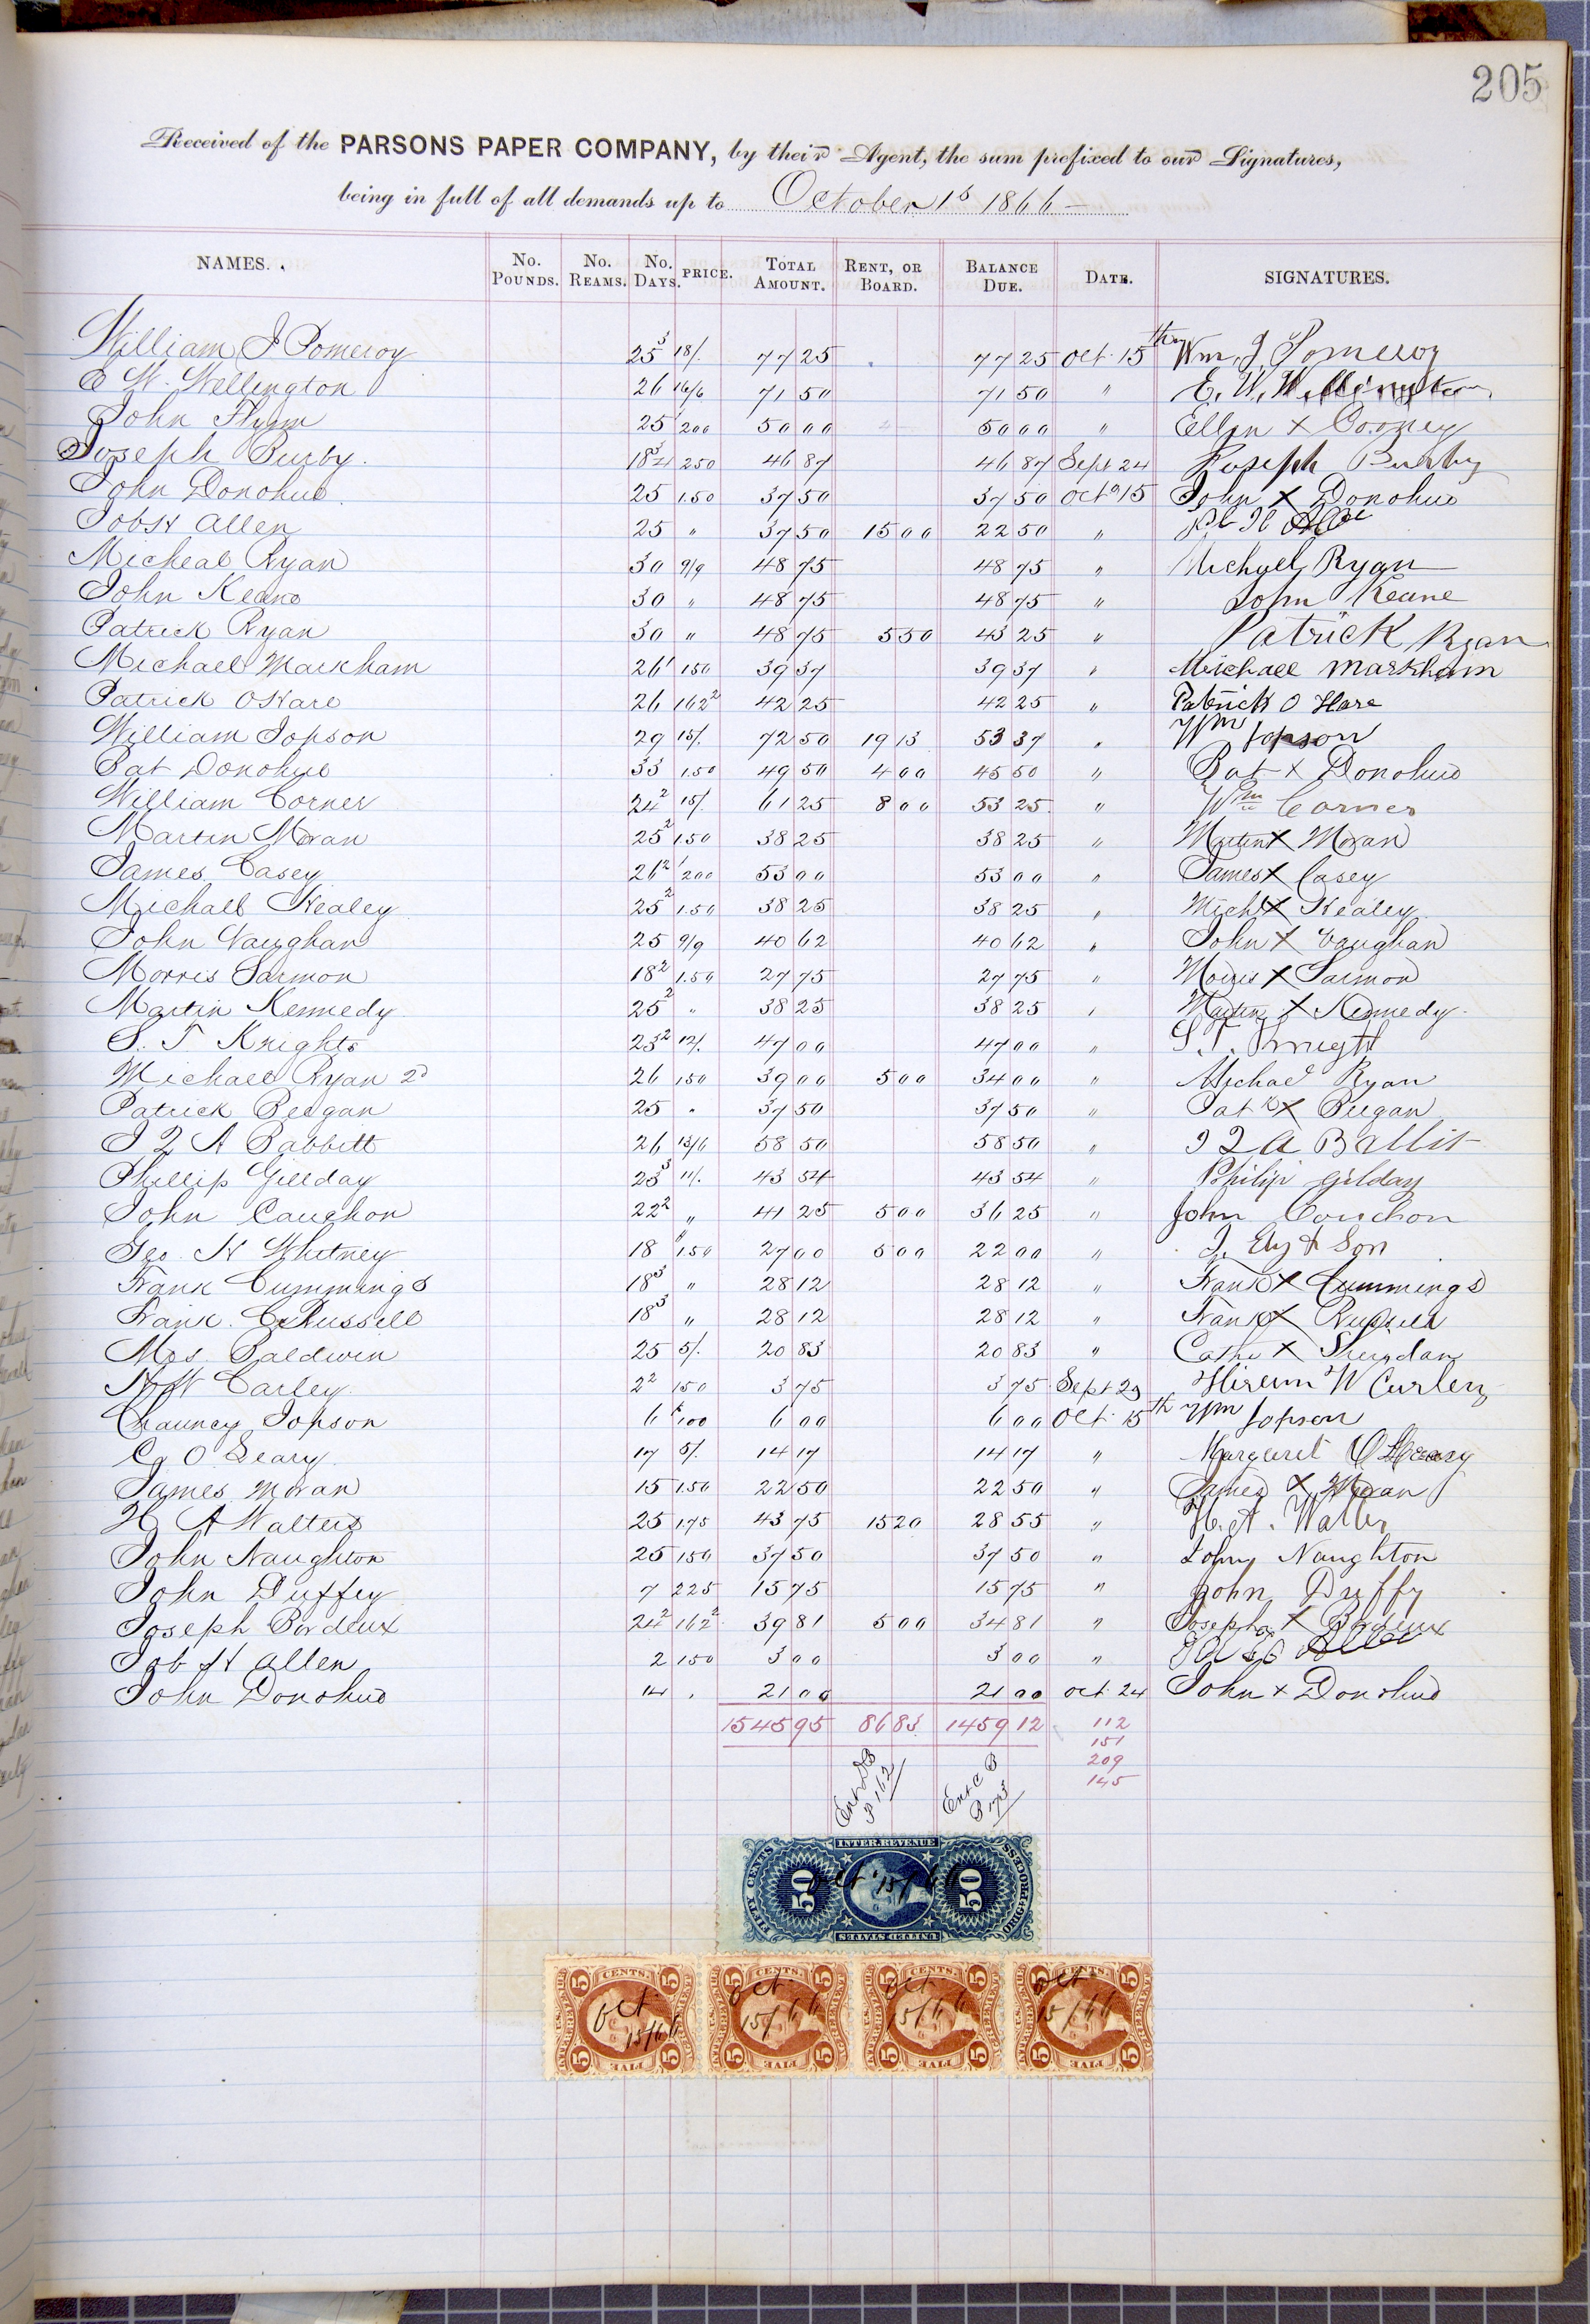 205
Received of the PARSONS PAPER COMPANY, by their Agent, the sum prefixed to our Signatures,
being in full of all demands up to October 1st 1866 —
NAMES. No. POUNDS. No. REAMS. No. DAYS. PRICE. TOTAL AMOUNT. RENT, OR BOARD. BALANCE DUE. DATE. SIGNATURES.
William J Pomeroy 25 3 18/. 77 25 77 25 Oct. 15th Wm. J Pomeroy
E W. Wellington 26 16/6 71 50 71 50 " E. W. Wellington
John Flynn 25 200 50 00 50 00 " Ellen X Cooney
Joseph Purby. 18 3/4 250 46 87 46 87 Sept 24 Joseph Purby
John Donohue 25 1.50 37 50 37 50 Oct 15 John X Donohue
Job H Allen 25 " 37 50 15 00 22 50 "
Micheal Ryan 30 9/9 48 75 48 75 " Michael Ryan
John Keane 30 " 48 75 48 75 " John Keane
Patrick Ryan 30 " 48 75 5 50 43 25 " Patrick Ryan
Michael Markham 26 1 150 39 37 39 37 " Michael Markham
Patrick OHare 26 162 2 42 25 42 25 " Patrick O Hare
William Jopson 29 15/. 72 50 19 13 53 37 " Wm Jopson
Pat Donohue 33 1.50 49 50 4 00 45 50 " Pat X Donohue
William Corner 24 2 15/. 61 25 8 00 53 25 " Wm Corner
Martin Moran 25 2 1.50 38 25 38 25 " Martin X Moran
James Casey 26 2 200 53 00 53 00 " James X Casey
Michael Kealey 25 2 1.50 38 25 38 25 " Michl X Kealey
John Vaughan 25 9/9 40 62 40 62 " John X Vaughan
Morris Sarmon 18 2 1.50 27 75 27 75 " Morris X Sarmon
Martin Kennedy 25 2 " 38 25 38 25 " Martin X Kennedy
S. T Knights 23 2 12/. 47 00 47 00 " S. T. Knight
Michael Ryan 2d 26 150 39 00 5 00 34 00 " Michael Ryan
Patrick Beegan 25 " 37 50 37 50 " Patk X Beegan
J Q A Babbitt 26 13/6 58 50 58 50 " J Q A Babbit
Phillip Gillday 23 3 11/. 43 54 43 54 " Philip Gilday
John Caughon 22 2 " 41 25 5 00 36 25 " John Couchon
Geo. H Whitney 18 1.50 27 00 5 00 22 00 " J. Ely & Son
Frank Cummings 18 3 " 28 12 28 12 " Frank X Cummings
Frank. C Russell 18 3 " 28 12 28 12 " Frank X Russell
Mrs. Baldwin 25 5/. 20 83 20 83 " Cathe X Sheridan
H W Carley. 2 2 150 3 75 3 75 Sept 29 Hiram W Curley
Chauncy Jopson 6 100 6 00 6 00 Oct. 15th Wm Jopson
O Leary. 17 5/. 14 17 14 17 " Margaret O Leary
James Moran 15 1.50 22 50 22 50 " James X Moran
H A Walters 25 1.75 43 75 15 20 28 55 " H. A. Walters
John Naughton 25 150 37 50 37 50 " John Naughton
John Duffey 7 225 15 75 15 75 " John Duffy
Joseph Bordeux 24 2 162 2 39 81 5 00 34 81 " Joseph X Bordeux
Job H Allen 2 150 3 00 3 00 "
John Donohue 14 " 21 00 21 00 Oct. 24 John X Donohue
1545 95 86 83 1459 12 112
151
209
145
Ent D B P 162
Ent C B P 173
INTER. REVENUE
FIFTY CENTS 50 50 ORIG. PROCESS
UNITED STATES
Oct 15/66
5 CENTS. 5 5 CENTS. 5 5 CENTS. 5 5 CENTS. 5
Oct 15/66 Oct 15/66 Oct 15/66 Oct 15/66
5 FIVE 5 5 FIVE 5 5 FIVE 5 5 FIVE 5